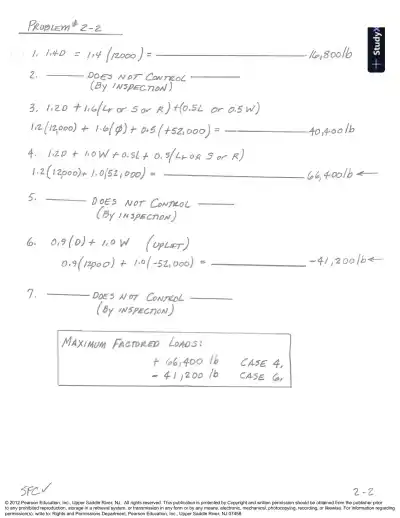 PROBLEM # 2-2
1. 1.4D = 1.4 (12000) = 16,800 lb
+ StudyX
2. DOES NOT CONTROL
(BY INSPECTION)
3. 1.2D + 1.6(Lr or S or R) + (0.5L or 0.5W)
1.2(12,000) + 1.6(∅) + 0.5(+52,000) = 40,400 lb
4. 1.2D + 1.0W + 0.5L + 0.5(Lr OR S or R)
1.2(12,000) + 1.0(52,000) = 66,400 lb ←
5. DOES NOT CONTROL
(By INSPECTION)
6. 0.9(D) + 1.0W (UPLIFT)
0.9(12000) + 1.0(-52,000) = -41,200 lb ←
7. DOES NOT CONTROL
(By INSPECTION)
MAXIMUM FACTORED LOADS:
+ 66,400 lb CASE 4.
- 41,200 lb CASE 6.
SFC ✓ 2-2
© 2012 Pearson Education, Inc., Upper Saddle River, NJ. All rights reserved. This publication is protected by Copyright and written permission should be obtained from the publisher prior
to any prohibited reproduction, storage in a retrieval system, or transmission in any form or by any means, electronic, mechanical, photocopying, recording, or likewise. For information regarding
permission(s), write to: Rights and Permissions Department, Pearson Education, Inc., Upper Saddle River, NJ 07458.